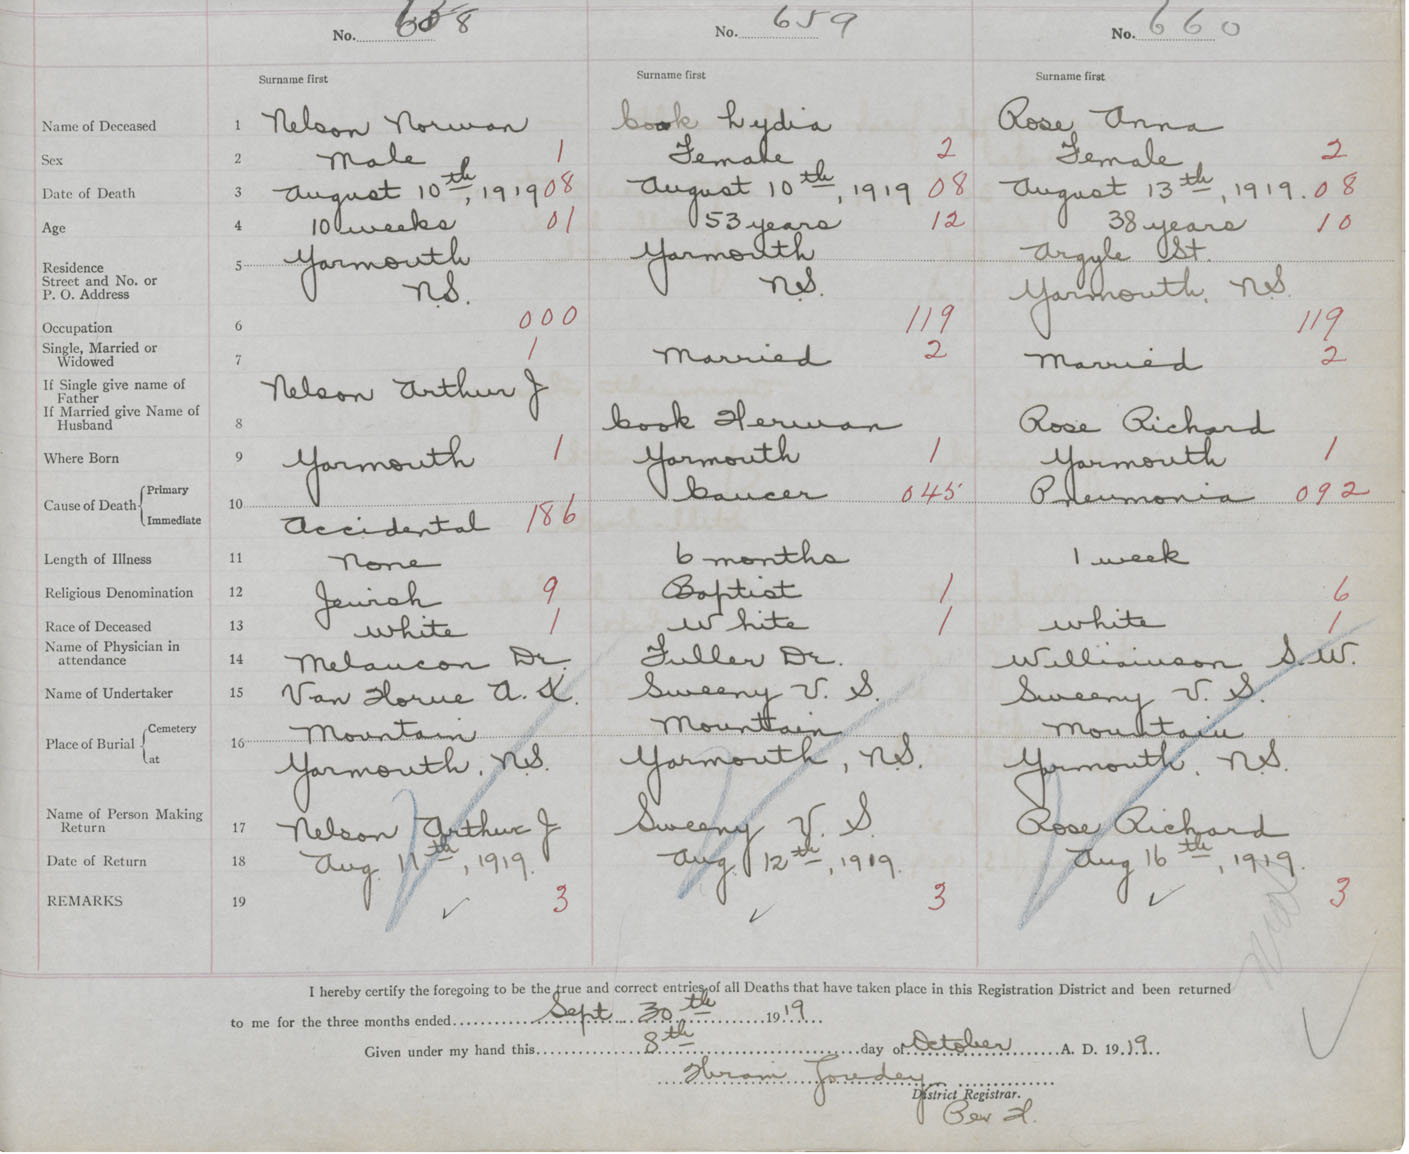 No. 658 No. 659 No. 660
Surname first Surname first Surname first
Name of Deceased 1 Nelson Norman Cook Lydia Rose Anna
Sex 2 Male 1 Female 2 Female 2
Date of Death 3 August 10th, 1919 08 August 10th, 1919 08 August 13th, 1919. 08
Age 4 10 weeks 01 53 years 12 38 years 10
Residence Street and No. or P. O. Address 5 Yarmouth N.S. Yarmouth N.S. Argyle St. Yarmouth, N.S.
Occupation 6 000 119 119
Single, Married or Widowed 7 1 Married 2 Married 2
If Single give name of Father If Married give Name of Husband 8 Nelson Arthur J Cook Herman Rose Richard
Where Born 9 Yarmouth 1 Yarmouth 1 Yarmouth 1
Cause of Death Primary Immediate 10 Accidental 186 Cancer 045 Pneumonia 092
Length of Illness 11 None 6 months 1 week
Religious Denomination 12 Jewish 9 Baptist 1 6
Race of Deceased 13 White 1 White 1 White 1
Name of Physician in attendance 14 Melancon Dr. Fuller Dr. Williamson S.W.
Name of Undertaker 15 Van Horne A. K. Sweeny V. S. Sweeny V. S.
Place of Burial Cemetery at 16 Mountain Yarmouth, N.S. Mountain Yarmouth, N.S. Mountain Yarmouth, N.S.
Name of Person Making Return 17 Nelson Arthur J Sweeny V. S. Rose Richard
Date of Return 18 Aug. 11th, 1919. Aug. 12th, 1919. Aug 16th, 1919.
REMARKS 19 3 3 3
I hereby certify the foregoing to be the true and correct entries of all Deaths that have taken place in this Registration District and been returned
to me for the three months ended Sept 30th 1919
Given under my hand this 8th day of October A. D. 1919.
Hiram
District Registrar.